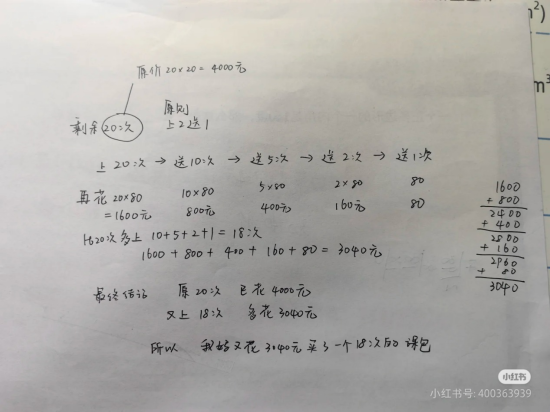 原价 20×20=4000元
剩余20次
原则
上2送1
上20次→送10次→送5次→送2次→送1次
再花 20×80 10×80 5×80 2×80 80
=1600元 800元 400元 160元 80
比20次多上 10+5+2+1=18次
1600+800+400+160+80=3040元
1600
+ 800
2400
+ 400
2800
+ 160
2960
+ 80
3040
最终结论 原20次 已花4000元
又上18次 多花3040元
所以 我妈又花3040元买了一个18次的课包
小红书
小红书号: 400363939
m²)
m³